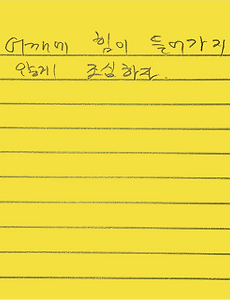 어깨에 힘이 들어가지
않게 조심하자.